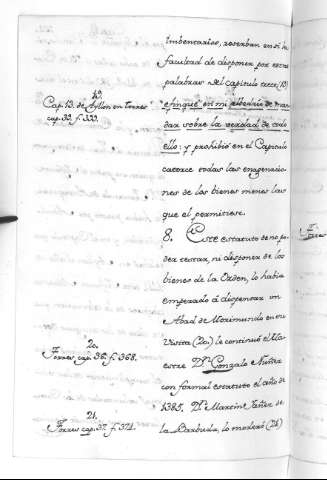 Imbentarios, reserban en si la
facultad de disponer por estas
palabras del capitulo trece (19)
19.
Cap. 13. de Ayllon en torres
cap. 33. f. 333.
dar sobre la verdad de todo
ello: y prohibió en el Capitulo
catorce todas las enagenacio
nes de los bienes menos las
que el permitiese.
8. Este estatuto de no po
der testar, ni disponer de los
bienes de la Orden, lo habia
empezado á dispensar un
Abad de Morimundo en su
Visita (20) le continuó el Ma
estre Dn. Gonzalo Nuñez
con formal estatuto el año de
1385. Dn. Martin Yañez de
la Barbuda, lo moderó (21)
20.
Torres, cap. 36. f. 368.
21.
Torres cap. 37. f. 371.